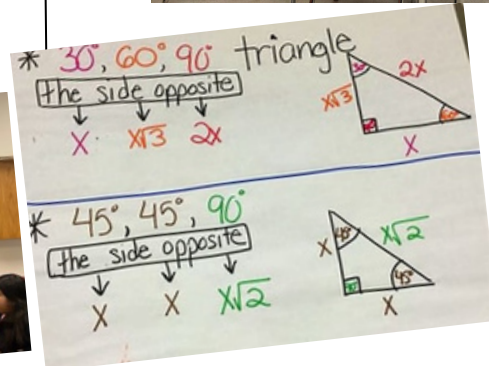 * 30°, 60°, 90° triangle
the side opposite
x x√3 2x
30° 2x
x√3
60°
x
* 45°, 45°, 90°
the side opposite
x x x√2
45° x√2
x
45°
x